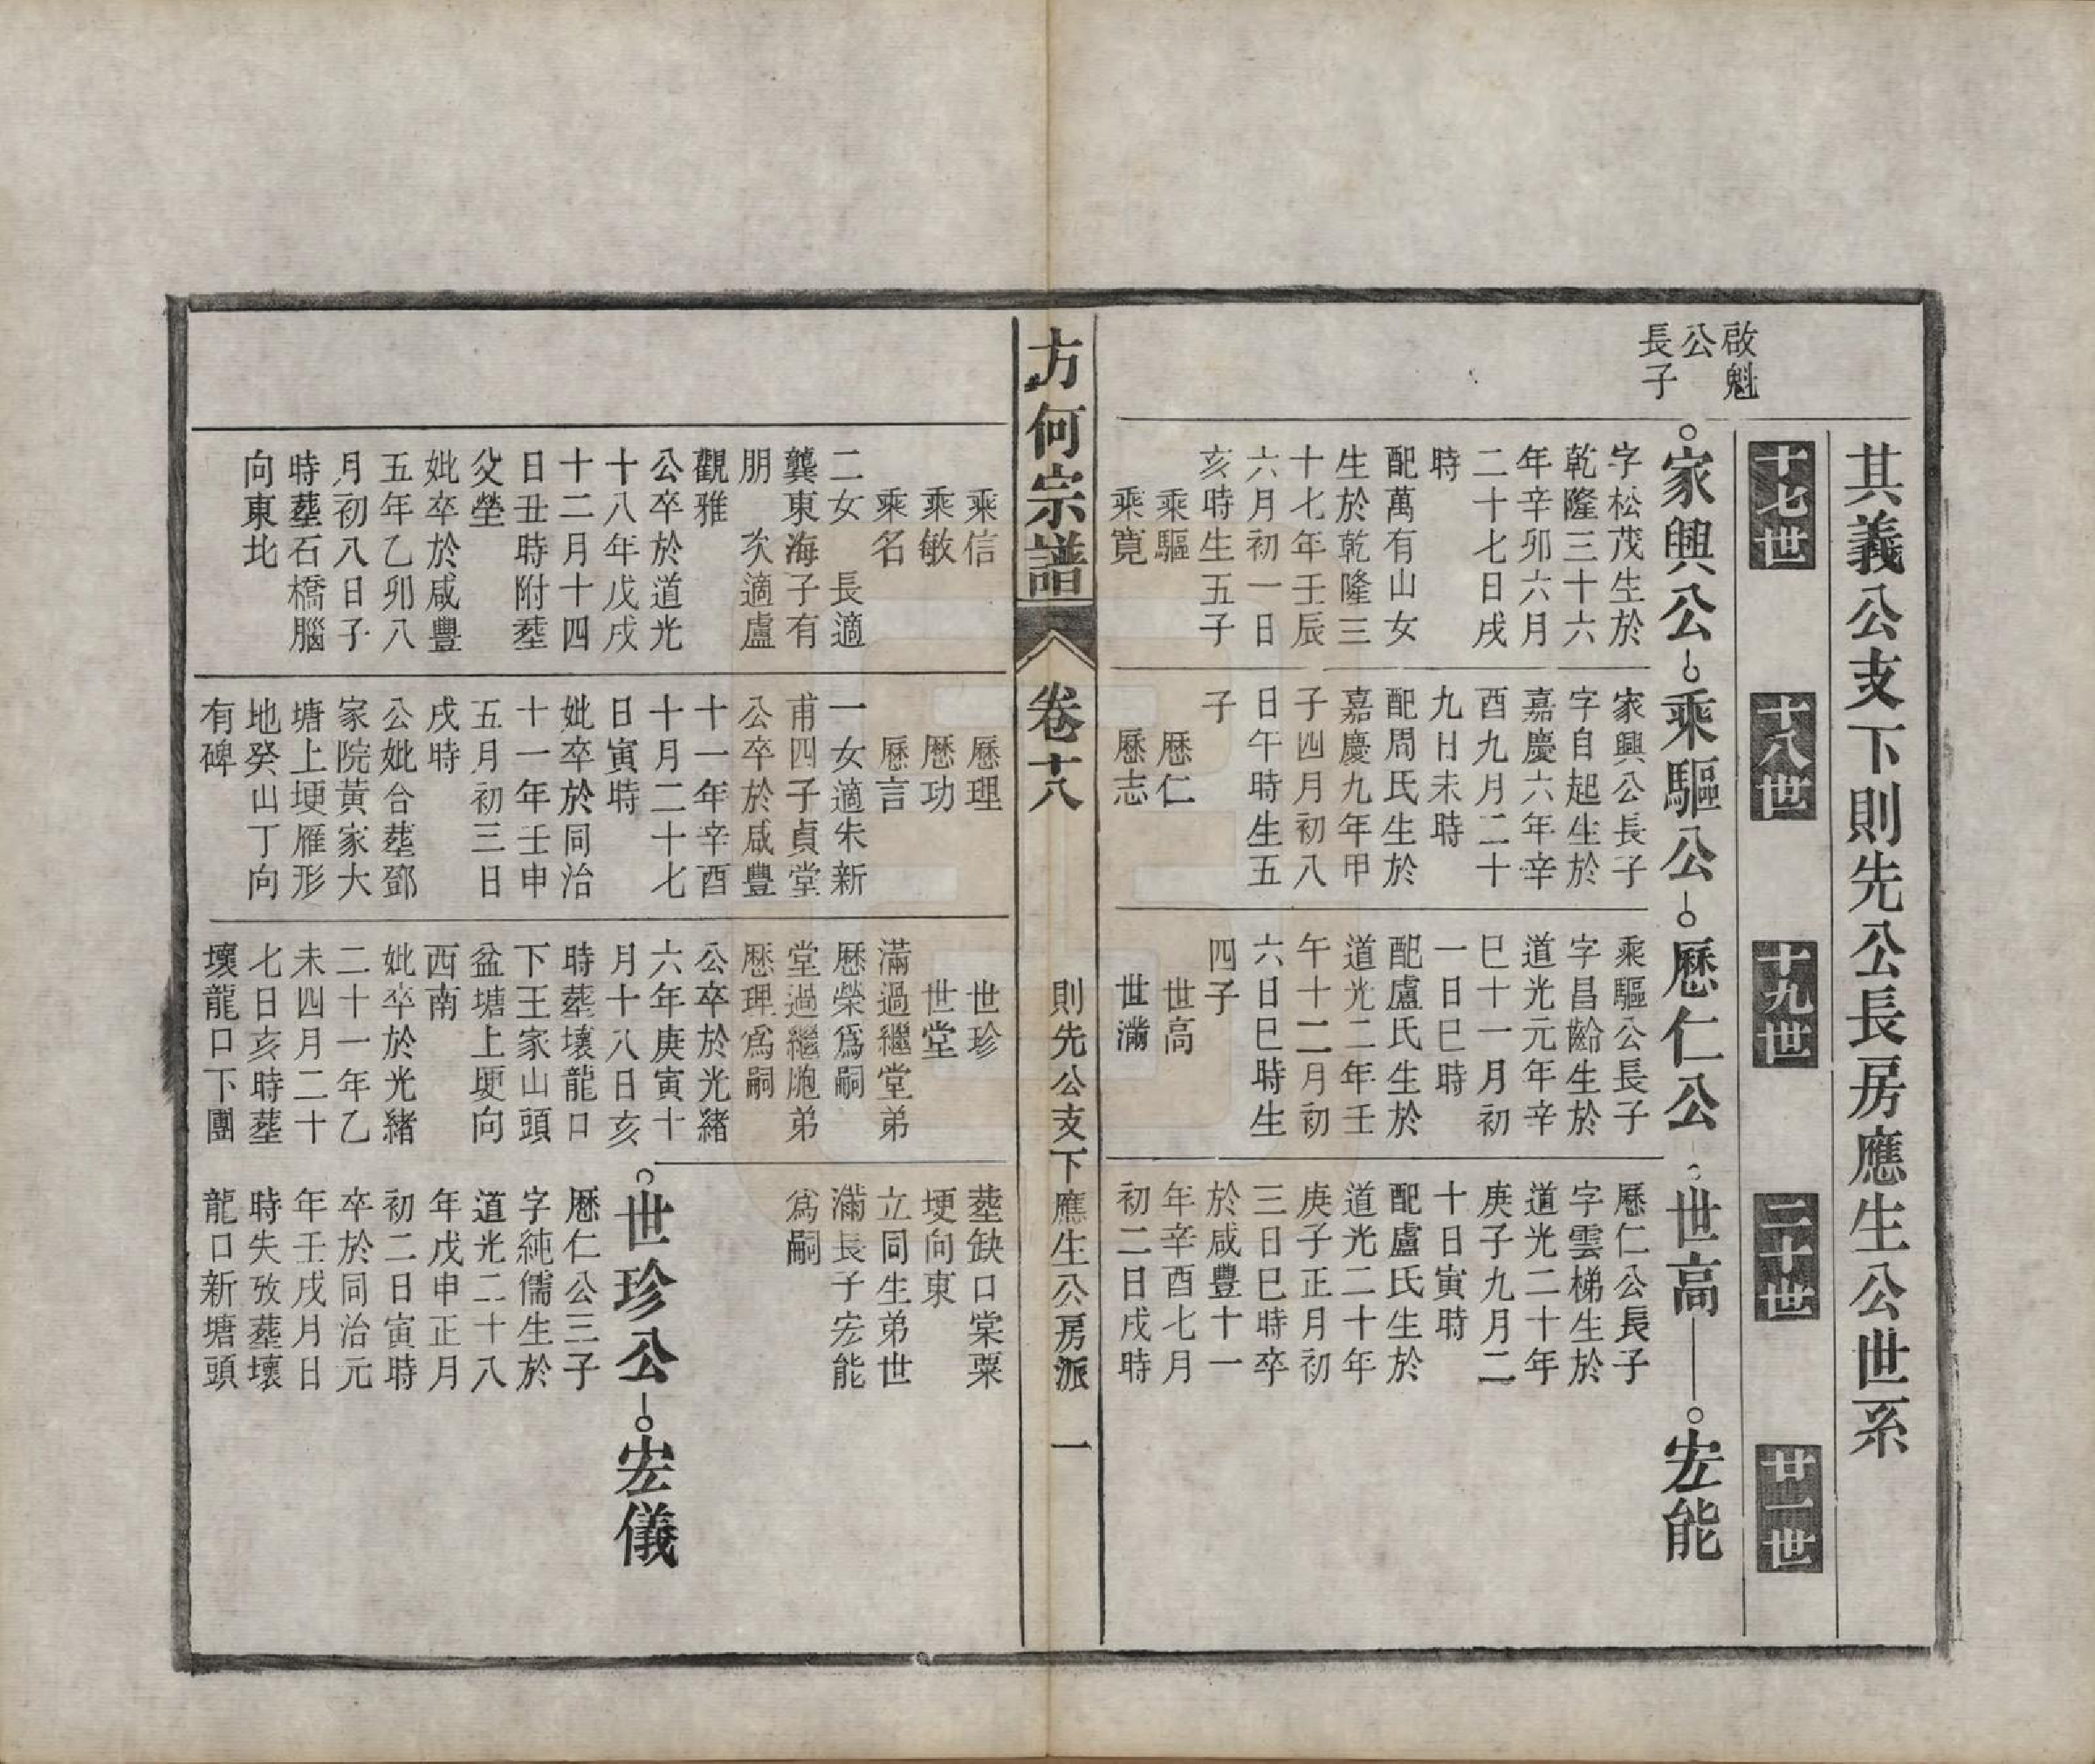 其義公支下則先公長房應生公世系
十七世
十八世
十九世
二十世
廿一世
啟魁
公
長子
家興公
乘驅公
厯仁公
世高
宏能
字松茂生於
乾隆三十六
年辛卯六月
二十七日戌
時
配萬有山女
生於乾隆三
十七年壬辰
六月初一日
亥時生五子
乘驅
乘寬
家興公長子
字自起生於
嘉慶六年辛
酉九月二十
九日未時
配周氏生於
嘉慶九年甲
子四月初八
日午時生五
子
厯仁
厯志
乘驅公長子
字昌齡生於
道光元年辛
巳十一月初
一日巳時
配盧氏生於
道光二年壬
午十二月初
六日巳時生
四子
世高
世滿
厯仁公長子
字雲梯生於
道光二十年
庚子九月二
十日寅時
配盧氏生於
道光二十年
庚子正月初
三日巳時卒
於咸豐十一
年辛酉七月
初二日戌時
方何宗譜
卷十八
則先公支下應生公房派
一
乘信
乘敏
乘名
二女 長適
龔東海子有
朋 次適盧
觀雅
公卒於道光
十八年戊戌
十二月十四
日丑時附塟
父塋
妣卒於咸豐
五年乙卯八
月初八日子
時塟石橋腦
向東北
厯理
厯功
厯言
一女適朱新
甫四子貞堂
公卒於咸豐
十一年辛酉
十月二十七
日寅時
妣卒於同治
十一年壬申
五月初三日
戌時
公妣合塟鄧
家院黃家大
塘上埂雁形
地癸山丁向
有碑
世珍
世堂
滿過繼堂弟
厯榮爲嗣
堂過繼胞弟
厯理爲嗣
公卒於光緒
六年庚寅十
月十八日亥
時塟壤龍口
下王家山頭
盆塘上埂向
西南
妣卒於光緒
二十一年乙
未四月二十
七日亥時塟
壤龍口下團
塟缺口棠粟
埂向東
立同生弟世
滿長子宏能
爲嗣
世珍公
宏儀
厯仁公三子
字純儒生於
道光二十八
年戊申正月
初二日寅時
卒於同治元
年壬戌月日
時失攷塟壤
龍口新塘頭